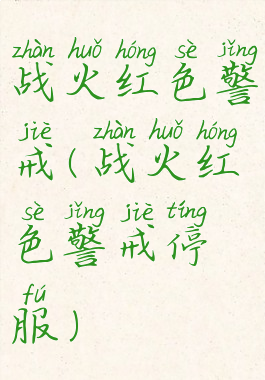 zhàn huǒ hóng sè jǐng
战火红色警
jiè zhàn huǒ hóng
戒(战火红
sè jǐng jiè tíng
色警戒停
fú
服)